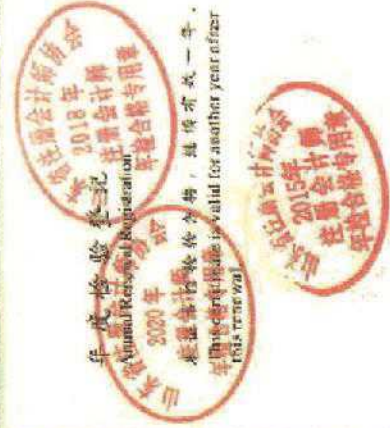 年度检验登记
Annual Renewal Registration
本证书经检验合格，继续有效一年。
This certificate is valid for another year after
this renewal
山东省注册会计师协会
2018年
注册会计师
年检合格专用章
山东省注册会计师协会
2020年
注册会计师
年检合格专用章
山东省注册会计师协会
2015年
注册会计师
年检合格专用章